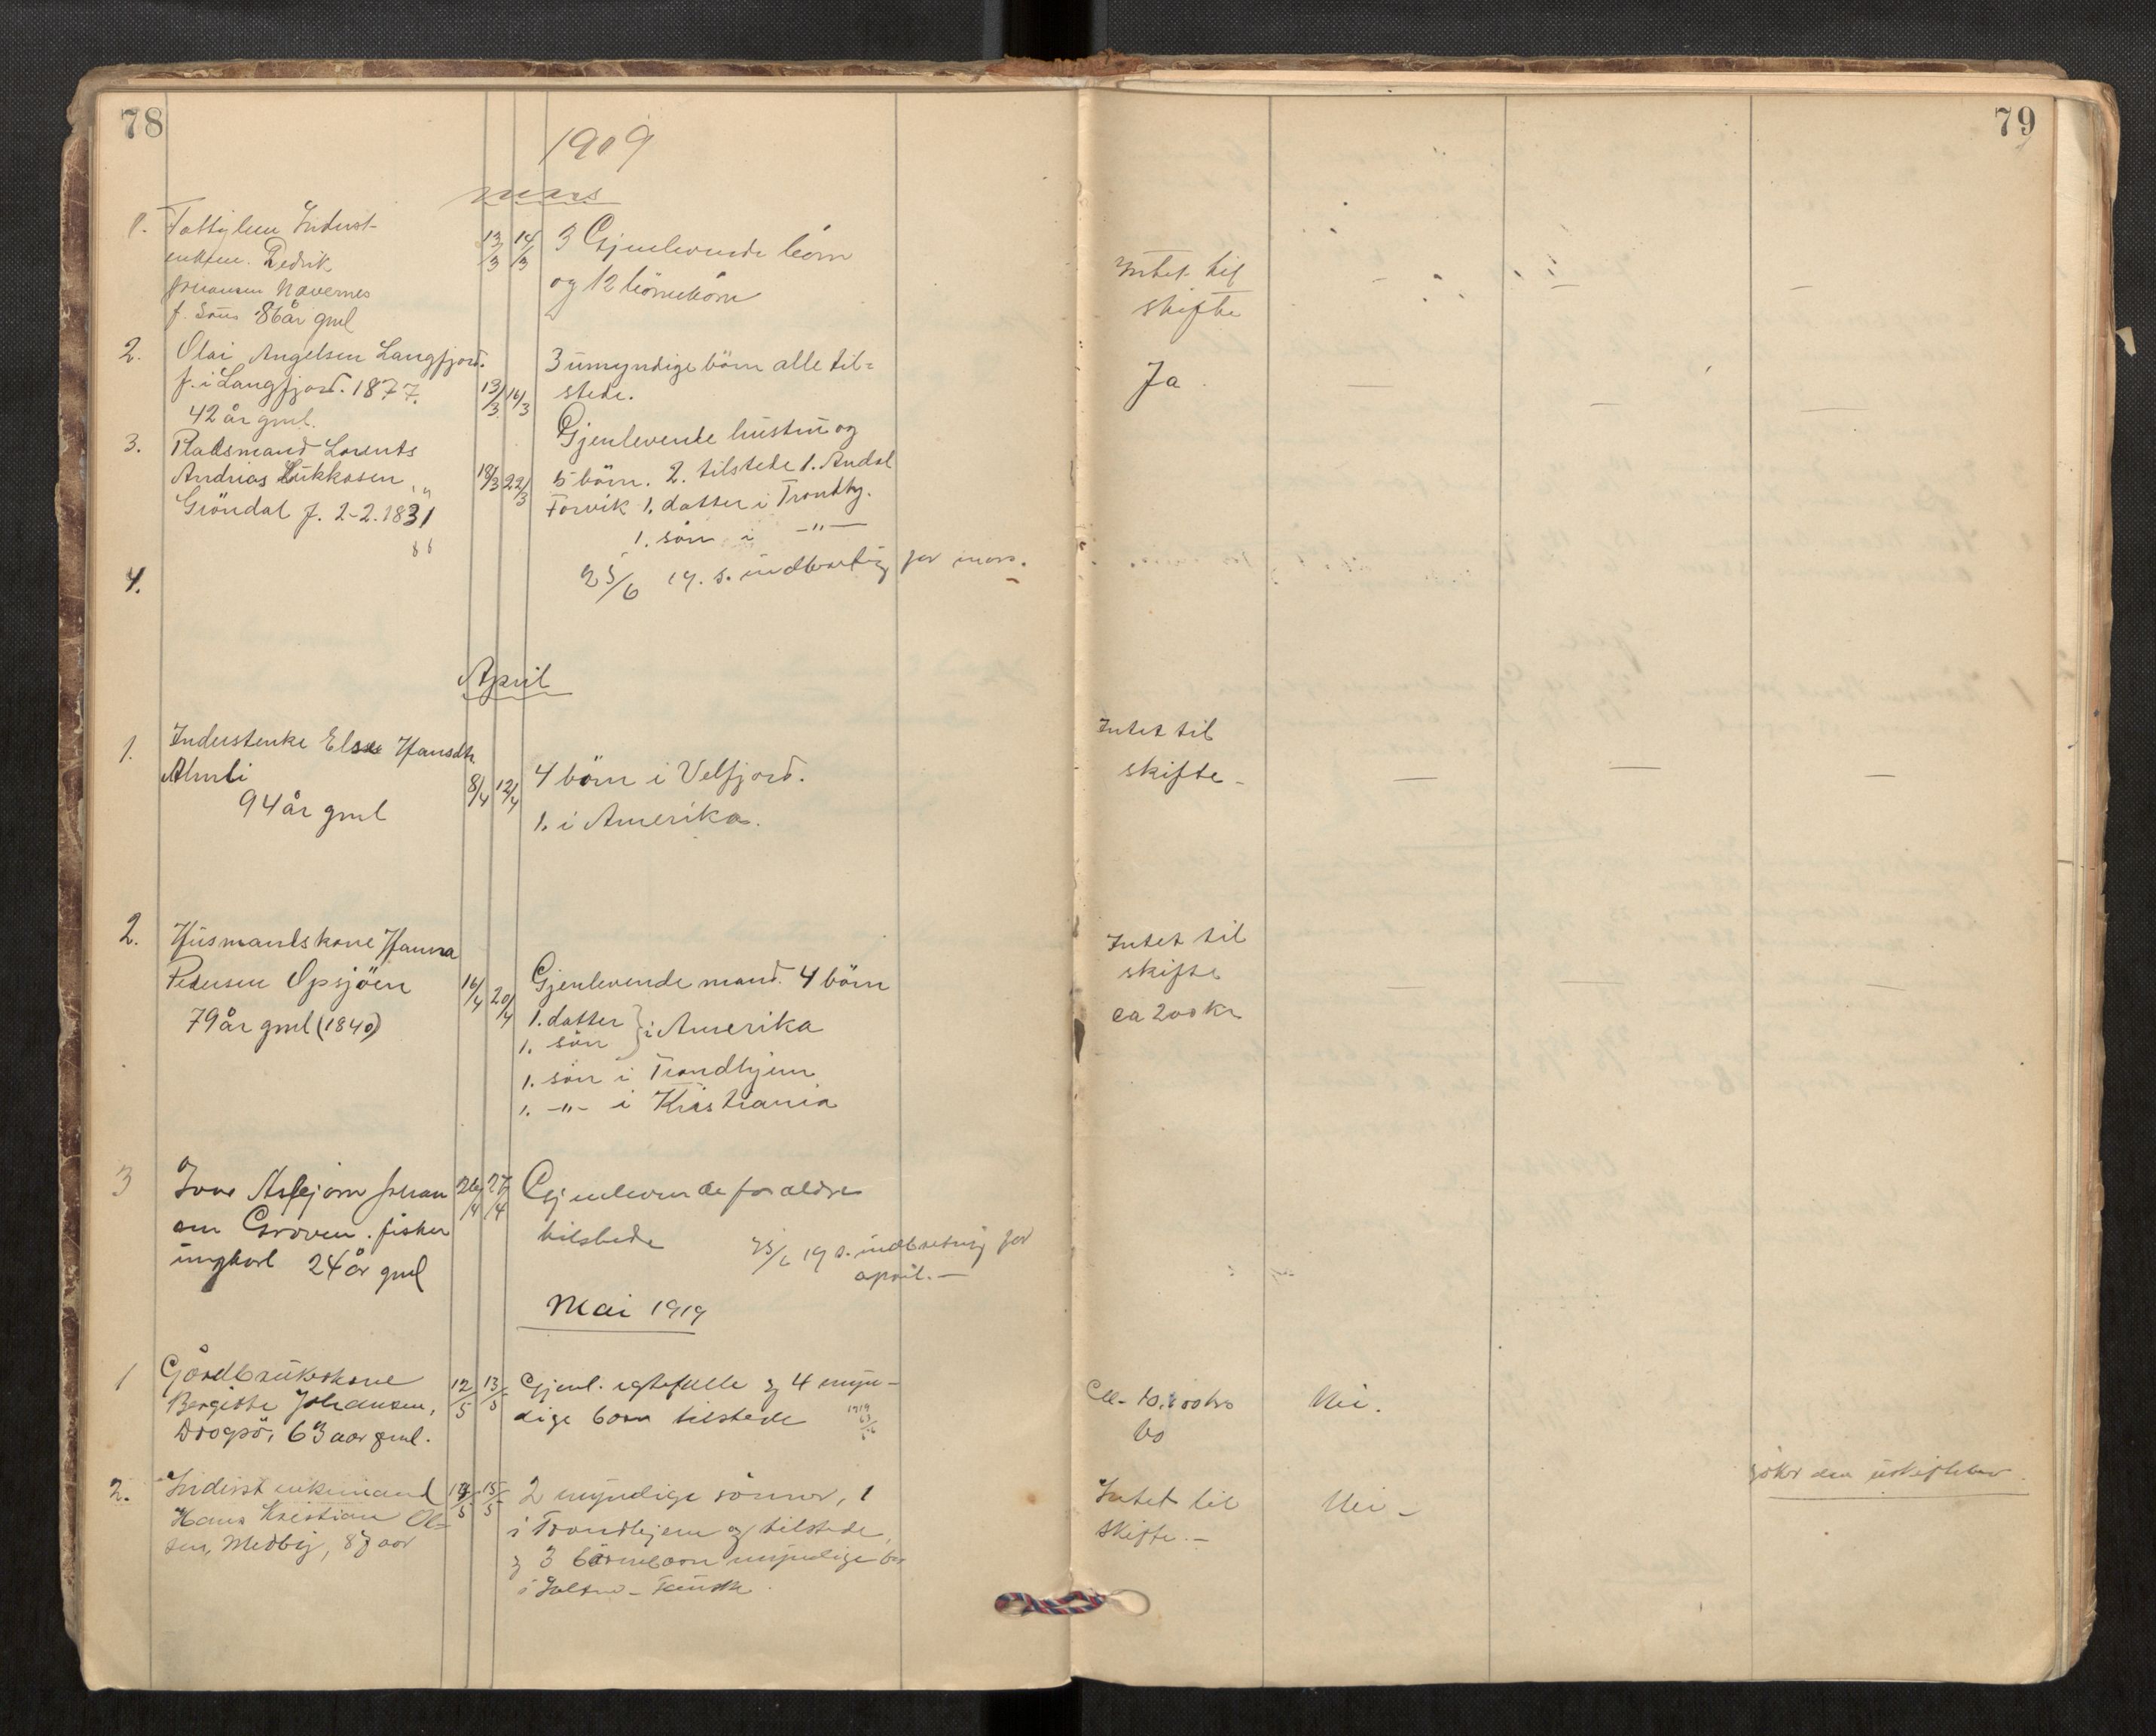 78
79
1909
mars
1.
Fattiglem Inderst-
enkem. Pedrik
Johansen Navernes
86 år gml
13/3 14/3
3 Gjenlevende börn
og 12 börnebörn
Intet til
skifte
2.
Olai Angelsen Langfjord.
f. i Langfjord. 1877.
42 år gml.
13/3 16/3
3 umyndige börn alle til-
stede.
Ja
3.
Pladsmand Lorents
Andrias Lukkasen
Gröndal f. 2-2.1831
88
18/3 22/3
Gjenlevende hustru og
5 börn. 2. tilstede 1. Andal
Forvik 1. datter i Trondhj.
1. sön i -"-
4.
25/6 19. s. indberetning for mars.
April
1.
Inderstenke Else Hansdtr
Almli
94 år gml
8/4 12/4
4 börn i Velfjord.
1. i Amerika.
Intet til
skifte -
2.
Husmandskone Hanna
Pedersen Opsjöen
79 år gml (1840)
16/4 20/4
Gjenlevende mand. 4 börn
1. datter
1. sön } i Amerika
1. sön i Trondhjem
1. -"- i Kristiania
Intet til
skifte
ca 200 kr
3
Asbjørn Johan
sen Groven. fisker
ungkarl 24 år gml
26/4 27/4
Gjenlevende forældre
tilstede
25/6 19 s. indberetning for
april. -
Mai 1919
1
Gårdbrukerkone
Bergitte Johansen,
63 aar gml.
12/5 13/5
Gjenl. egtefelle og 4 myn-
dige børn tilstede
Nei.
søker om uskiftebev.
2.
Inderst enkemand
Hans Kristian Ol-
sen, Medby, 87 aar
15/5
2 myndige sönner, 1
i Trondhjem og tilstede,
og 3 börnebørn umyndige
Intet til
skifte. -
Nei -